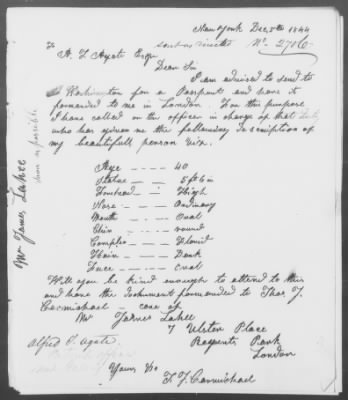 New York Dec 5th 1844
sent as directed No. 2786.
To
A. T. Agate Esqr
Dear Sir
I am advised to send to
Washington for a Passport and have it
forwarded to me in London. For this purpose
I have called on the officer in charge of that duty
who has given me the following description of
my beautifull person viz.
Age — — — 40
Statue — — — 5 ft 6 in
Forehead — — High
Nose — — — Ordinary
Mouth — — — Oval
Chin — — — round
Complex — — — Florid
Hair — — — Dark
Face — — — oval
Will you be kind enough to attend to this
and have the document forwarded to Thos F.
Carmichael — care of
Mr James Lahee
7 Ulster Place
Regents Park
London
Yours &c
T. F. Carmichael
Alfred T. Agate
Mr. James Lahee
soon as possible